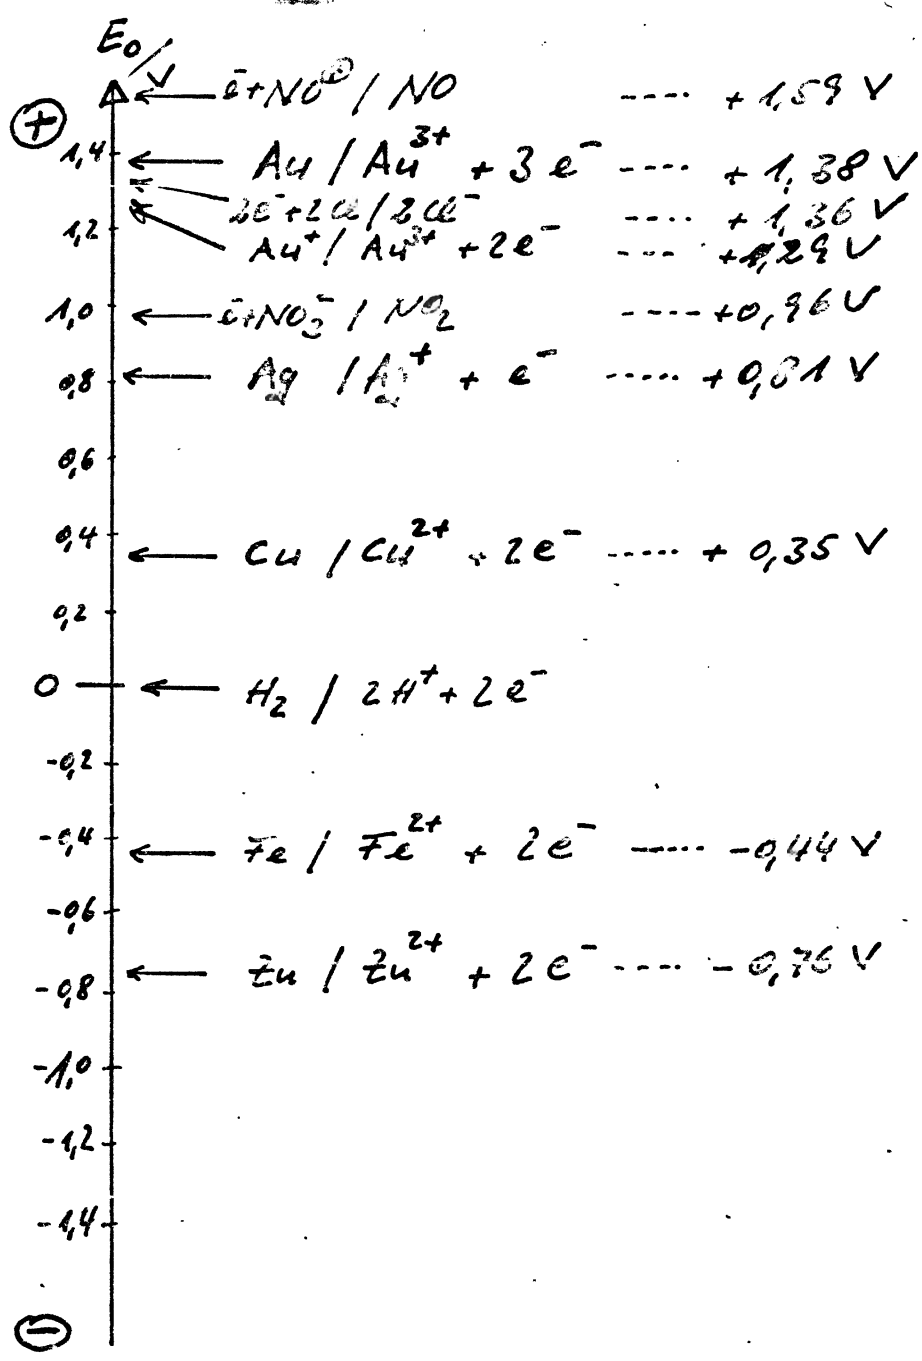 E₀/V
⊕
e⁻+NO⊕ / NO ---- + 1,59 V
1,4 Au / Au³⁺ + 3e⁻ ---- + 1,38 V
2e⁻+2Cl / 2Cl⁻ ---- + 1,36 V
1,2 Au⁺ / Au³⁺ + 2e⁻ --- +1,29 V
1,0 e⁻+NO₂⁻ / NO₂ ---- +0,96 V
0,8 Ag / Ag⁺ + e⁻ ----- +0,81 V
0,6
0,4 Cu / Cu²⁺ + 2e⁻ ----- + 0,35 V
0,2
0 H₂ / 2H⁺ + 2e⁻
-0,2
-0,4 Fe / Fe²⁺ + 2e⁻ ----- -0,44 V
-0,6
-0,8 Zn / Zn²⁺ + 2e⁻ ---- -0,76 V
-1,0
-1,2
-1,4
⊖